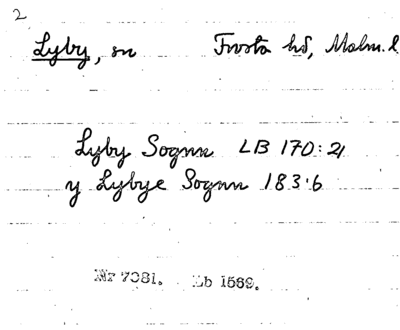 2
Lyby, sn Frosta hd, Malm. l
Lyby Sognn LB 170:21
y Lybye Sognn 183:6
Nr 7081. Lb 1569.